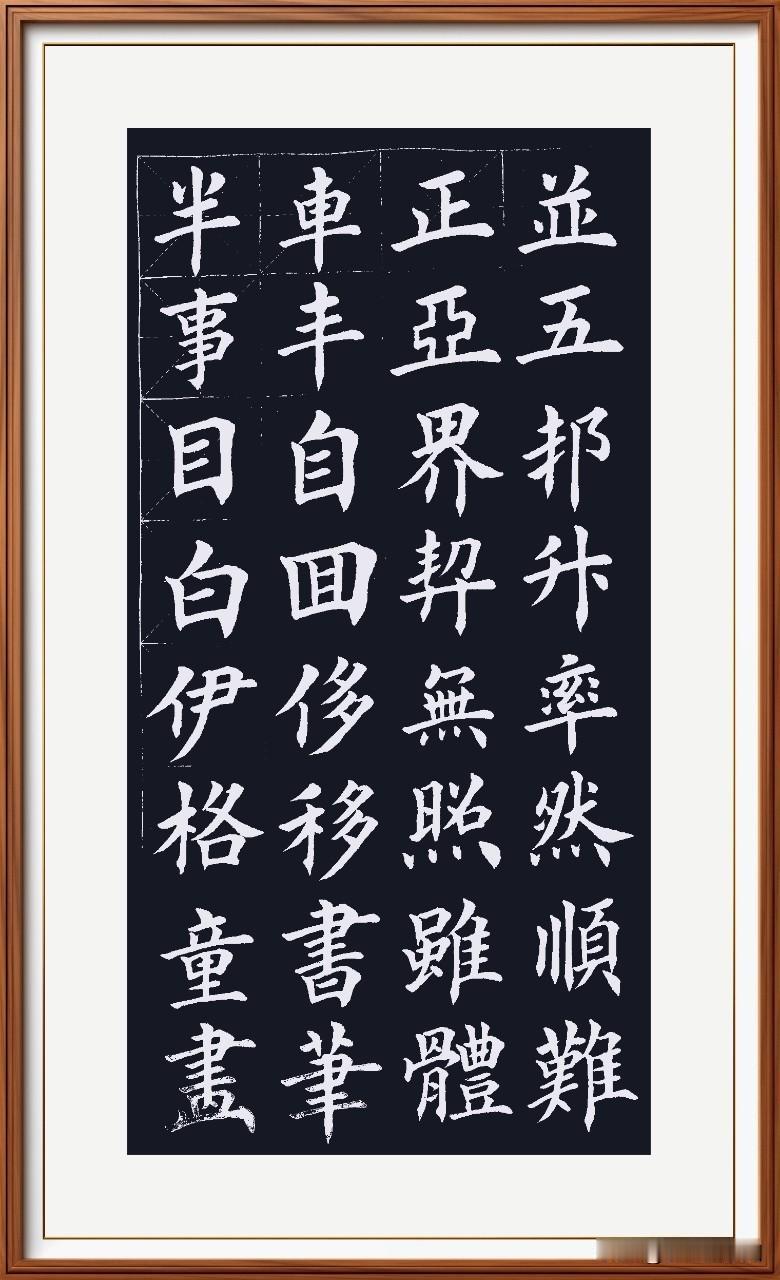 並五邦升率然順難
正亞界無照雖體
車丰自囬侈移書筆
半事目白伊格童畫